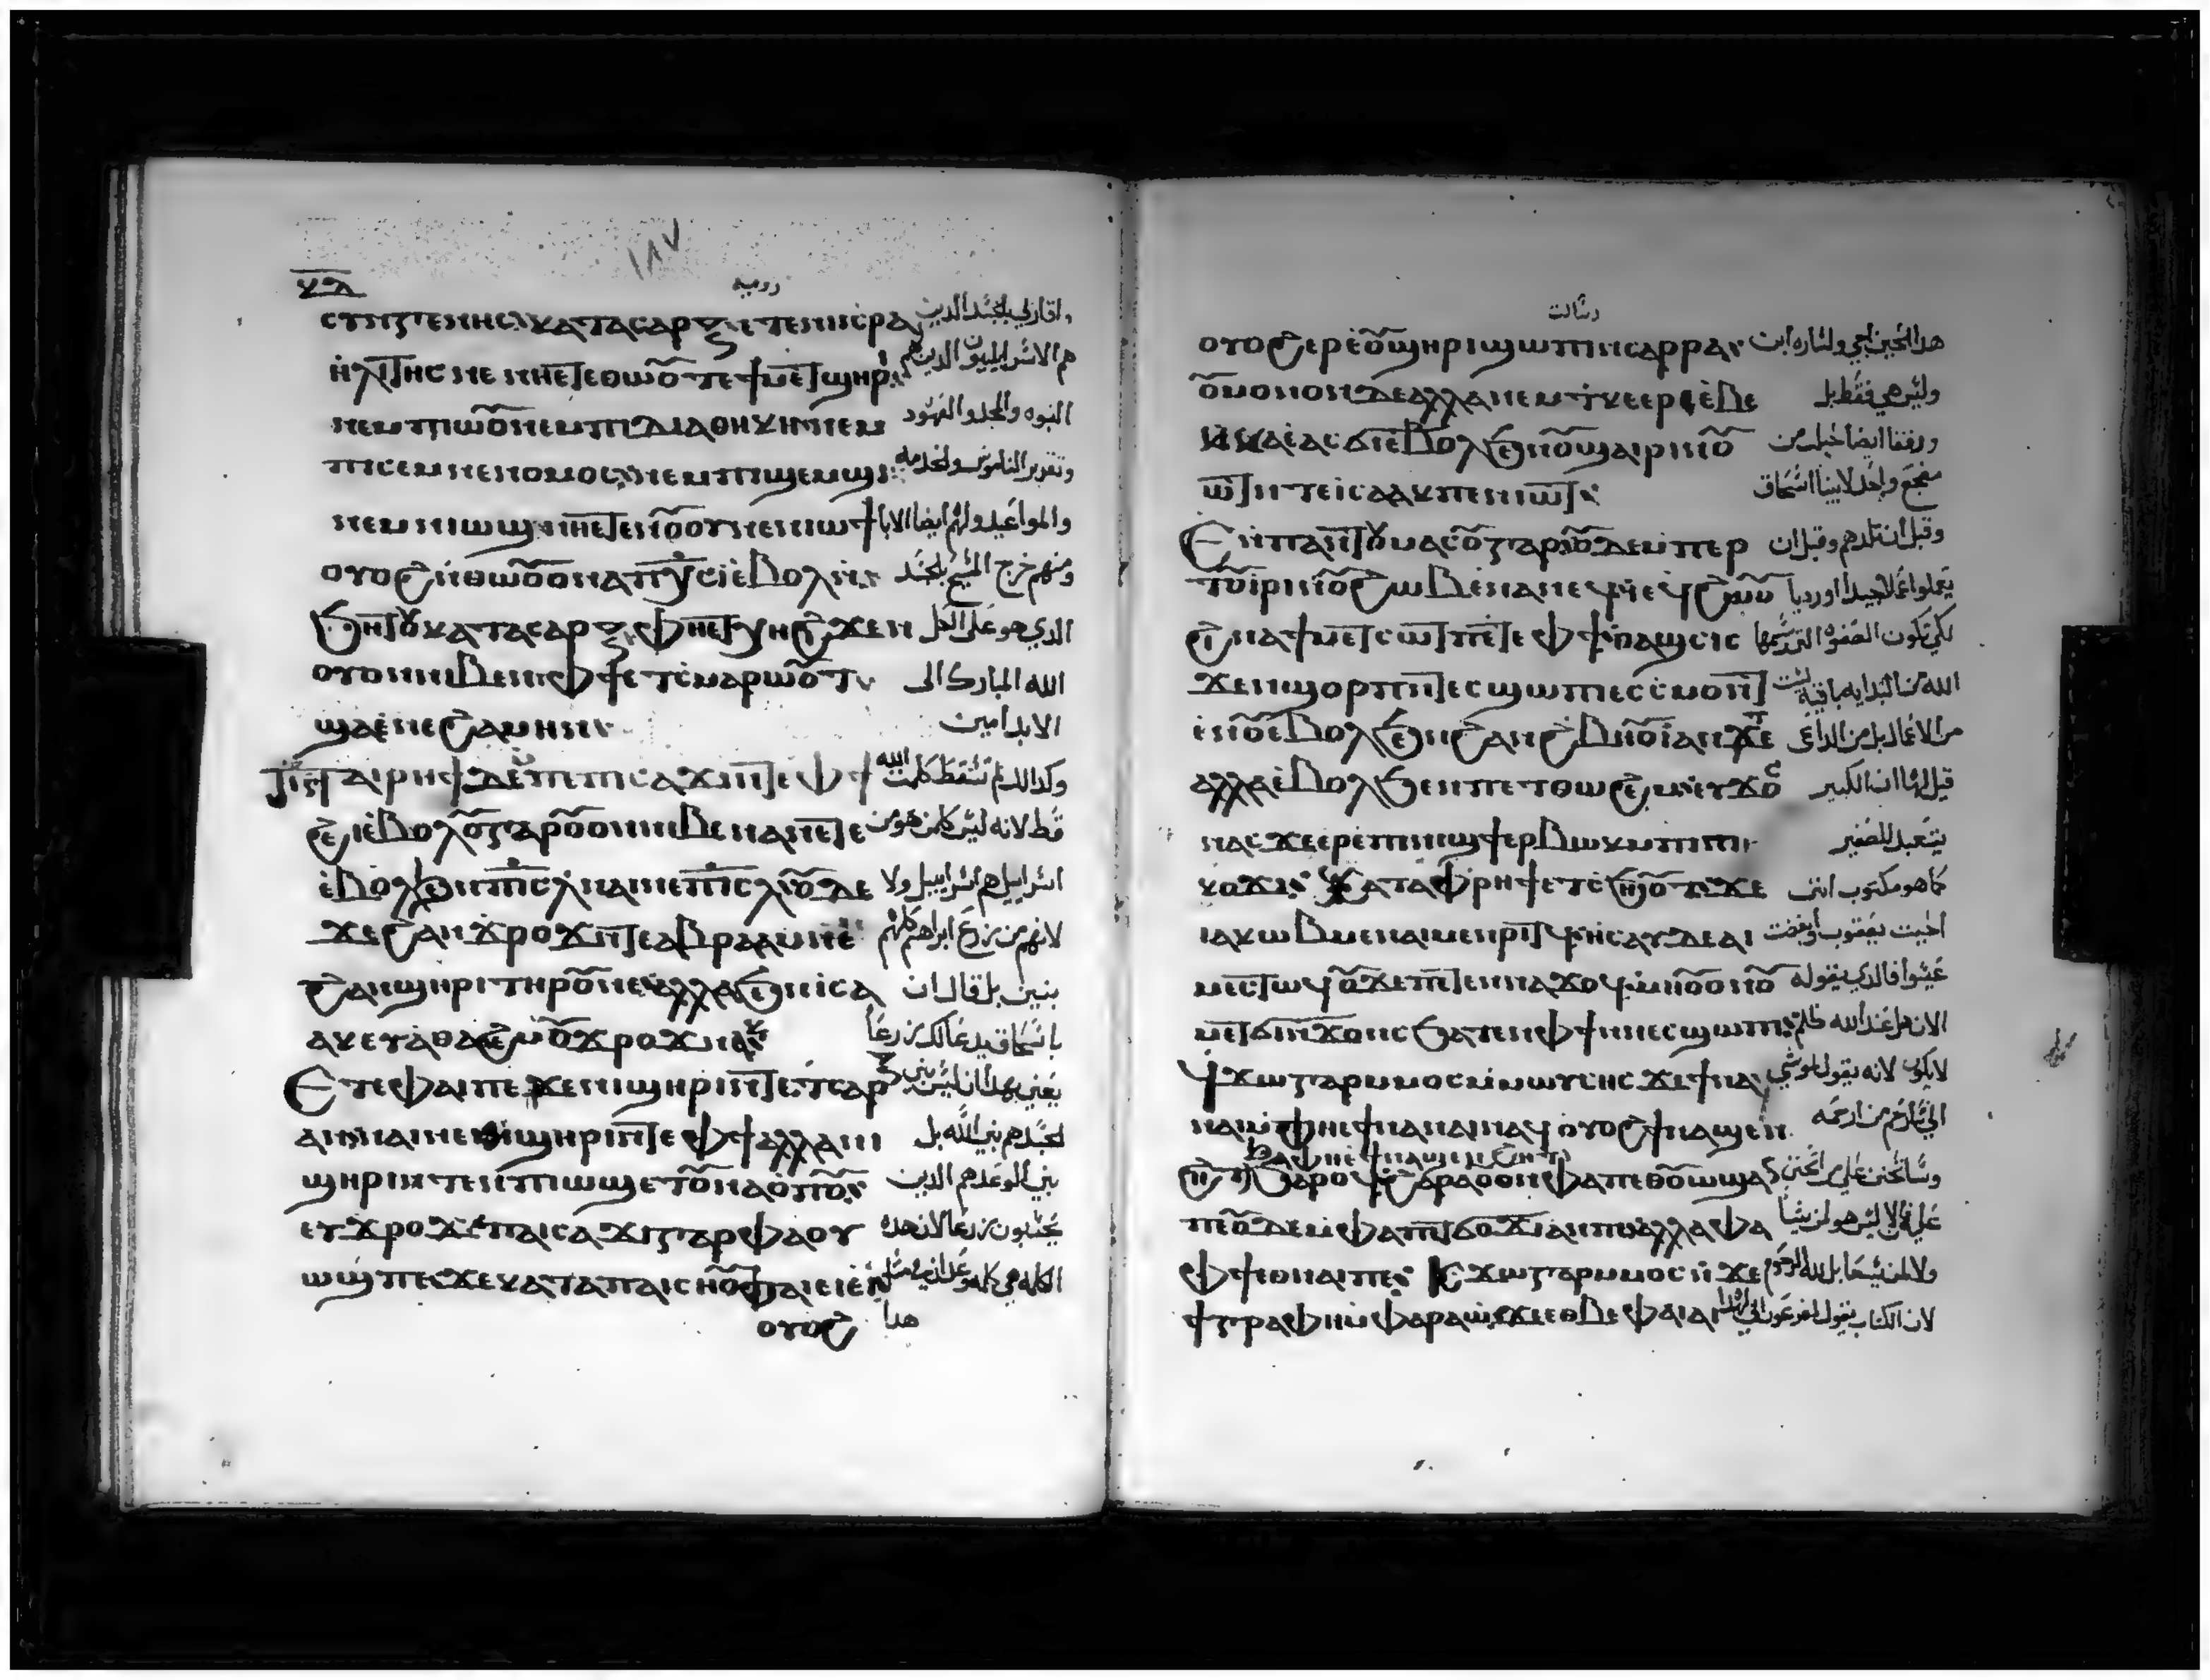 رومية
ⲥⲩⲛⲅⲉⲛⲏⲥ ⲕⲁⲧⲁⲥⲁⲣⲝ ⲉⲧⲉⲛⲓⲥⲣⲁ واقاربي بالجسد الدين
ⲏⲗⲓⲧⲏⲥ ⲛⲉ ⲛⲏⲉⲧⲉⲑⲱⲟⲩⲧⲉϯⲙⲉⲧϣⲏⲣⲓ هم الاسراييليون الدين لهم
ⲛⲉⲙⲡⲓⲱⲟⲩⲛⲉⲙϯⲇⲓⲁⲑⲏⲕⲏⲛⲉⲙ البنوه والمجد والعهود
ⲡⲓⲥⲉⲙⲛⲉⲛⲟⲙⲟⲥ ⲛⲉⲙⲡⲓϣⲉⲙϣⲓ وتقرير الناموس والخدمه
ⲛⲉⲙⲛⲓⲱϣ ⲛⲏⲉⲧⲉⲛⲟⲩⲟⲩⲛⲉⲛⲓⲟϯ والمواعيد ولهم ايضا الابا
ⲟⲩⲟϩⲛⲑⲱⲟⲩⲟⲛⲁⲡⲭⲥⲓⲉⲃⲟⲗⲛ ومنهم خرج المسيح بالجسد
ϧⲏⲧⲟⲩⲕⲁⲧⲁⲥⲁⲣⲝ ⲫⲏⲉⲧⲭⲏϩⲓϫⲉⲛ الدي هو على الكل
ⲟⲩⲟⲛⲛⲓⲃⲉⲛ ⲫϯⲉⲧⲥⲙⲁⲣⲱⲟⲩⲧ الله المبارك الى
ϣⲁⲉⲛⲉϩⲁⲙⲏⲛ الابد امين
ⲡⲁⲓⲣⲏϯⲇⲉⲙⲡⲉⲡⲥⲁϫⲓⲛⲧⲉⲫϯ وكدالك لم تسقط كلمت الله
ϩⲉⲓⲉⲃⲟⲗⲟⲩⲅⲁⲣⲟⲩⲟⲛⲛⲓⲃⲉⲛⲁⲛⲉⲧⲉ قط لانه ليس كل من هو من
ⲉⲃⲟⲗϧⲉⲛⲡⲓⲥⲗⲛⲁⲓⲛⲉⲡⲓⲥⲗ ⲟⲩⲇⲉ اسراييل هم اسراييل ولا
ϫⲉϩⲁⲛϫⲣⲟϫⲛⲧⲉⲁⲃⲣⲁⲁⲙⲛⲉ لانهم من زرع ابراهيم كلهم
ϩⲁⲛϣⲏⲣⲓⲧⲏⲣⲟⲩⲛⲉ ⲁⲗⲗⲁϧⲉⲛⲓⲥⲁ بنين بل قال ان
ⲁⲕⲉⲩⲑⲁϩⲉⲙⲟⲩϫⲣⲟϫⲛⲁⲕ باسحاق يدعا لك زرعا
ⲉⲧⲉⲫⲁⲓⲡⲉ ϫⲉⲛⲓϣⲏⲣⲓⲛⲧⲉⲧⲥⲁⲣⲝ يعني بهدا ان ليس بني
ⲁⲛⲛⲁⲓⲛⲉⲛⲓϣⲏⲣⲓⲛⲧⲉⲫϯⲁⲗⲗⲁⲛⲓ الجسد هم بني الله بل
ϣⲏⲣⲓⲛⲧⲉⲡⲓⲱϣⲉⲧⲟⲩⲛⲁⲟⲡⲟⲩ بني الموعد هم الدين
ⲉⲩϫⲣⲟϫ ⲡⲁⲓⲥⲁϫⲓⲅⲁⲣⲫⲁⲟⲩ يحتسبون زرعا لان هده
ⲱϣⲡⲉ ϫⲉⲕⲁⲧⲁⲡⲁⲓⲥⲏⲟⲩϯⲛⲁⲓⲉⲓⲉ
ⲟⲩⲟϩ هدا
رسالت
ⲟⲩⲟϩⲉⲣⲉⲟⲩϣⲏⲣⲓϣⲱⲡⲓⲛⲥⲁⲣⲣⲁ هدا الحين اجي ولساره ابن
ⲟⲩⲙⲟⲛⲟⲛⲇⲉⲁⲗⲗⲁⲛⲉⲙϯⲕⲉⲣⲉⲃⲉ وليس هي فقط بل
ⲕⲕⲁⲉⲁⲥϭⲓⲉⲃⲟⲗϧⲉⲛⲟⲩϣⲁⲓⲣⲓⲛⲟⲩ ورفقا ايضا حبلت من
ⲱⲧⲛⲧⲉⲓⲥⲁⲁⲕⲡⲉⲛⲓⲱⲧ مضجع واحد لابينا اسحاق
ⲉⲙⲡⲁⲛⲧⲟⲩⲙⲁⲥⲟⲩⲅⲁⲣⲟⲩⲇⲉⲙⲡⲉⲣ وقبل ان تلدهم وقبل ان
ⲧⲟⲩⲓⲣⲓⲛⲟⲩϩⲱⲃⲉⲛⲁⲛⲉϥⲓⲉϥϩⲱⲟⲩ يعملوا عملا جيدا او رديا
ϩⲓⲛⲁϯⲙⲉⲧⲥⲱⲧⲡⲛⲧⲉⲫϯⲡⲁϣⲥⲓⲥ لكي تكون الصفوه التي رسمها
ϫⲉⲛϣⲟⲣⲡⲛⲧⲉⲥϣⲱⲡⲉⲥⲥⲙⲟⲛⲧ الله منا البدايه باقيه ليست
ⲉⲛⲟⲩⲉⲃⲟⲗϧⲉⲛϩⲁⲛϩⲃⲏⲟⲩⲓⲁⲛϫⲉ من الاعمال بل من الداعي
ⲁⲗⲗⲁⲉⲃⲟⲗϧⲉⲛⲡⲉⲧⲑⲱϩⲉⲙ ⲉⲩϫⲟⲥ قيل لها ان الكبير
ⲛⲁⲥϫⲉⲉⲣⲉⲡⲓⲛⲓϣϯⲉⲣⲃⲱⲕⲙⲡⲓ يتعبد للصغير
ⲕⲟⲩϫⲓ ⲕⲁⲧⲁⲫⲣⲏϯⲉⲧⲥϧⲏⲟⲩⲧϫⲉ كما هو مكتوب انني
ⲓⲁⲕⲱⲃⲙⲉⲛⲁⲓⲙⲉⲛⲣⲓⲧϥ ⲏⲥⲁⲩⲇⲉⲁⲓ احببت يعقوب وابغضت
ⲙⲉⲥⲧⲱϥ ⲟⲩϫⲉⲡⲉⲧⲉⲛⲛⲁϫⲟϥ ⲙⲏⲟⲩⲟⲛⲟⲩ عيسوا فما الدي يقوله
ⲙⲉⲧϭⲓⲛϫⲟⲛⲥϧⲁⲧⲉⲛⲫϯⲛⲛⲉⲥϣⲱⲡⲓ الان هل عند الله ظلم
ϥϫⲱⲅⲁⲣⲙⲙⲟⲥⲙⲙⲱⲩⲥⲏⲥ ϫⲉϯⲛⲁ لا يكون لانه يقول لموسي
ⲛⲁⲓⲙⲫⲏⲉϯⲛⲁⲛⲁⲓⲛⲁϥ ⲟⲩⲟϩϯⲛⲁϣⲉⲛ اني سارحم من ارحمه
ϩⲏⲧϧⲁⲣⲟϥ ϩⲁⲣⲁⲟⲩⲛⲫⲁⲡⲉⲑⲟⲩⲱϣⲁⲛ
ⲡⲉⲟⲩⲇⲉⲙⲫⲁⲡⲉⲧϭⲟϫⲓⲁⲛⲡⲉⲁⲗⲗⲁⲫⲁ
ⲫϯⲉⲑⲛⲁⲓⲡⲉ ⲥϫⲱⲅⲁⲣⲙⲙⲟⲥⲛϫⲉ
ϯⲅⲣⲁⲫⲏⲙⲫⲁⲣⲁⲱ ϫⲉⲉⲑⲃⲉⲫⲁⲓⲁⲓ لان الكتاب يقول لفرعون اني لهدا